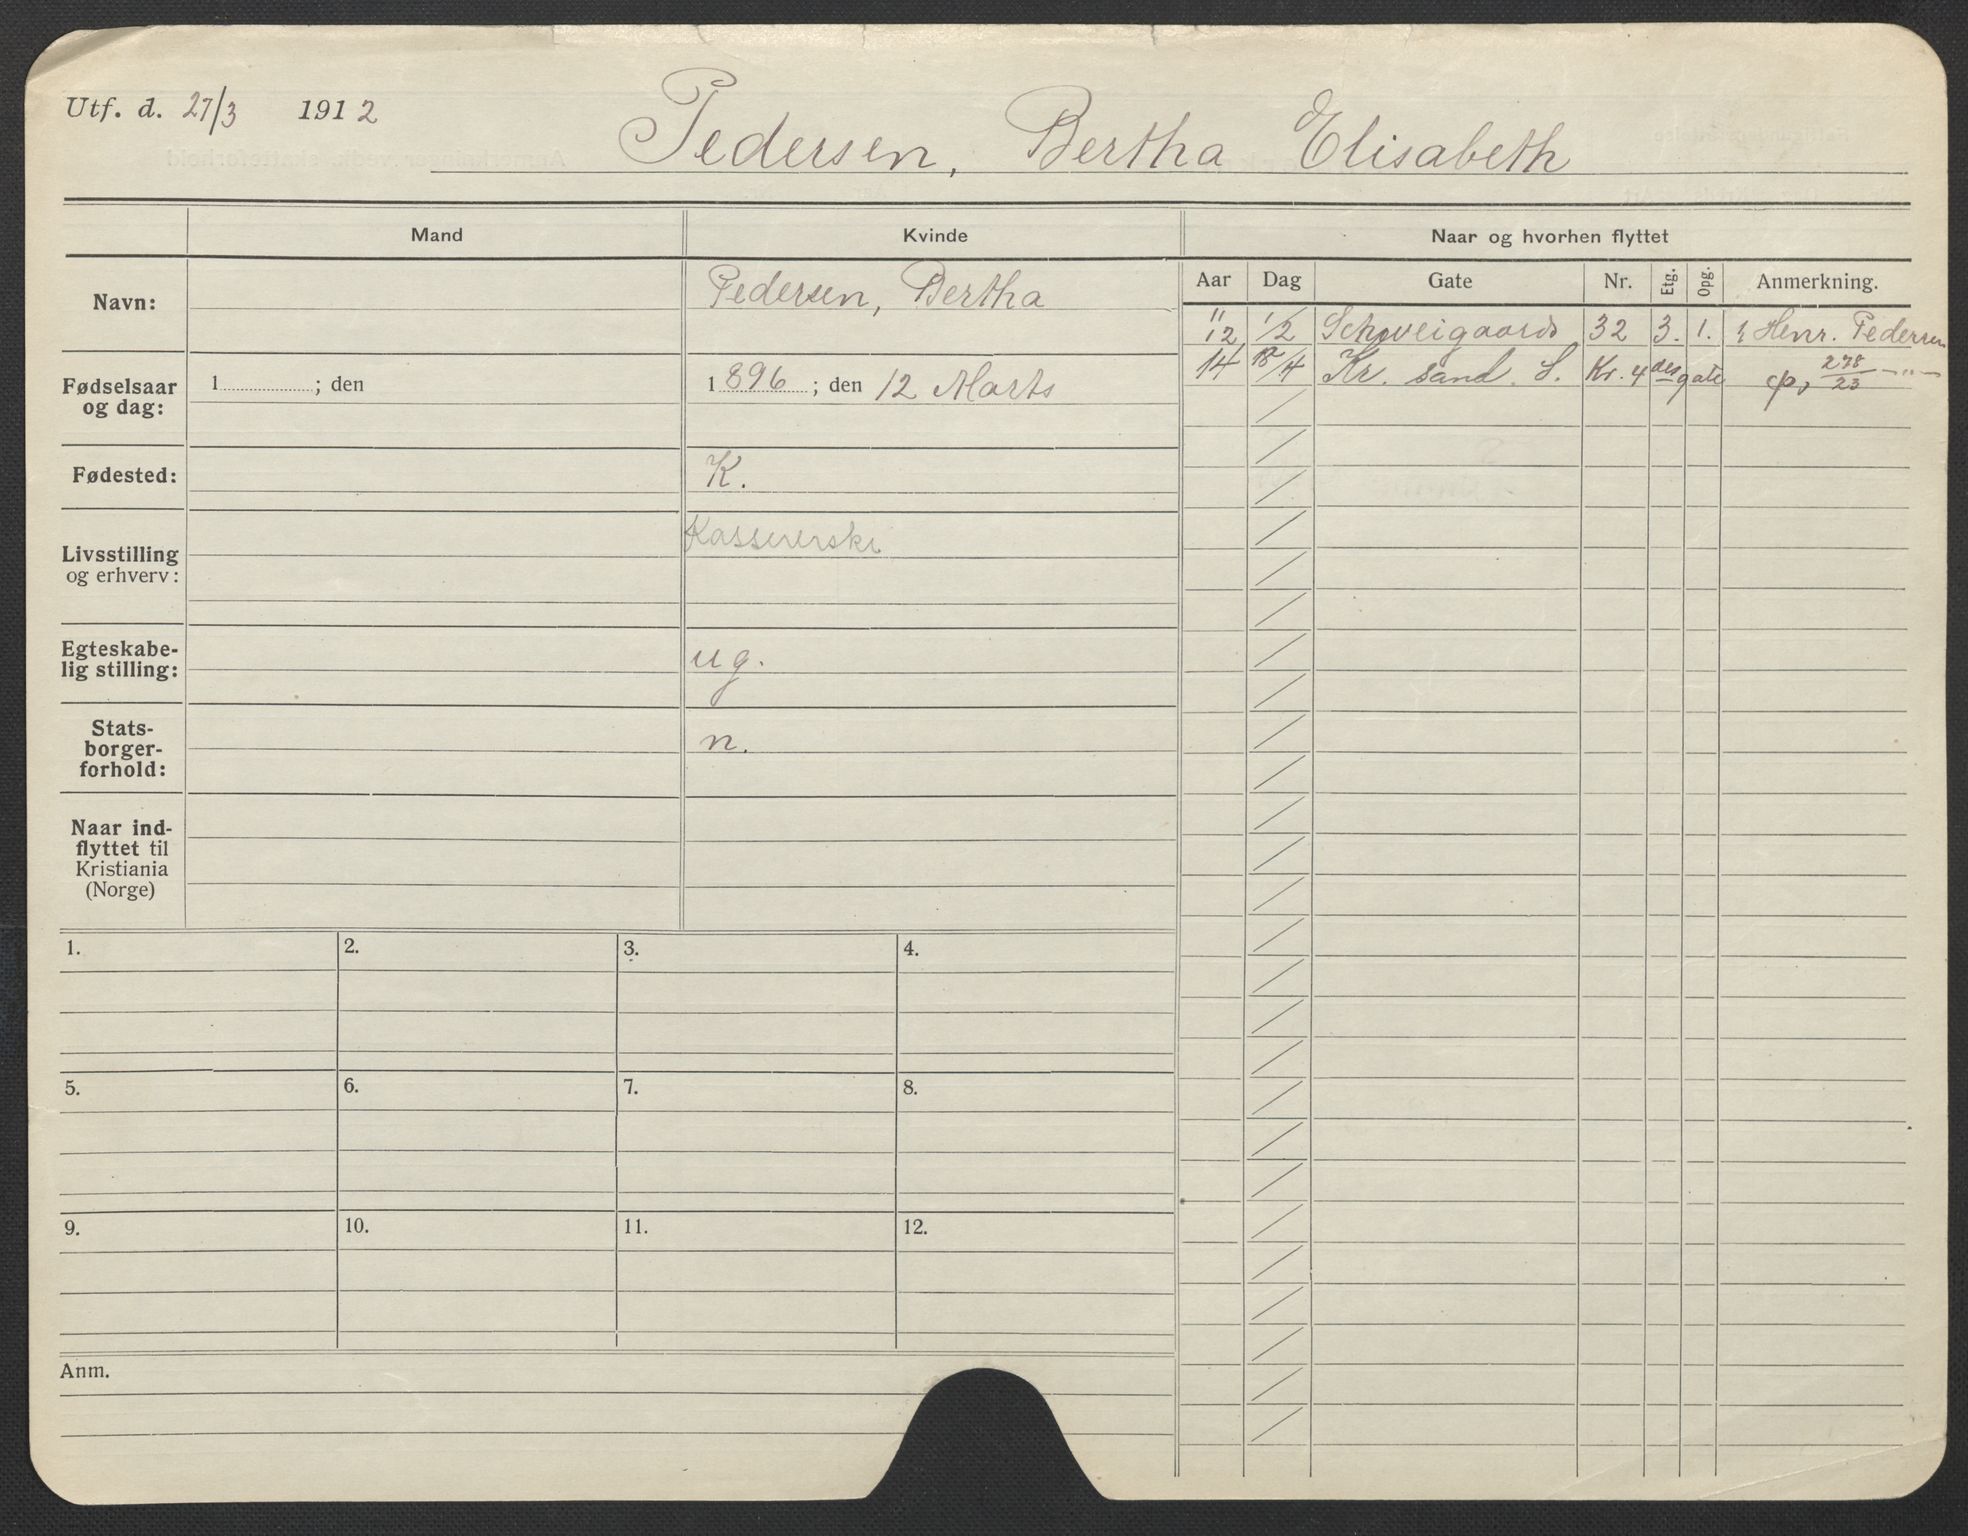 Utf. d. 27/3 1912
Pedersen, Bertha Elisabeth
Mand
Kvinde
Naar og hvorhen flyttet
Navn:
Pedersen, Bertha
Fødselsaar
og dag:
1 ; den
1896 ; den 12 Marts
Fødested:
K.
Livsstilling
og erhverv:
Kassererske
Egteskabe-
lig stilling:
ug.
Stats-
borger-
forhold:
n.
Naar ind-
flyttet til
Kristiania
(Norge)
Aar Dag Gate Nr. Etg. Opg. Anmerkning.
"
12 1/2 Schweigaards 32 3. 1. Henr. Pedersen
14 18/4 Kr. sand. S. Kr. 4 des gate 278/23 —"—
1.
2.
3.
4.
5.
6.
7.
8.
9.
10.
11.
12.
Anm.